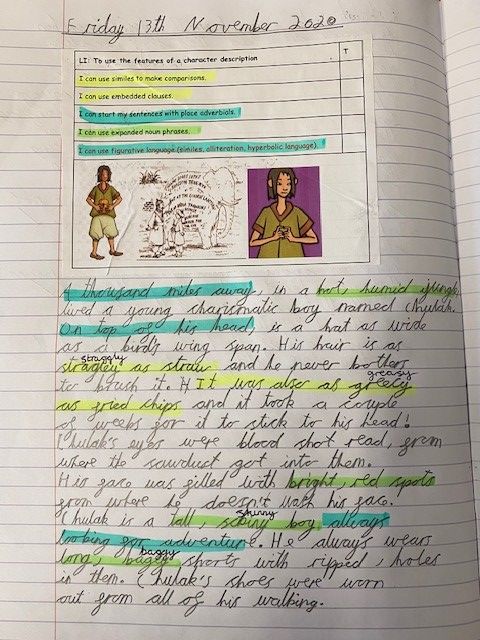 Friday 13th November 2020
LI: To use the features of a character description
T
I can use similes to make comparisons.
I can use embedded clauses.
I can start my sentences with place adverbials.
I can use expanded noun phrases.
I can use figurative language (similes, alliteration, hyperbolic language).
A thousand miles away, in a hot, humid jungle
lived a young charismatic boy named Chulak.
On top of his head, is a hat as wide
as a bird's wing span. His hair is as
straggly
as straw and he never bothers
greasy
to brush it. It was also as
as fried chips and it took a couple
of weeks for it to stick to his head!
Chulak's eyes were blood shot read, from
where the sawdust got into them.
His face was filled with bright, red spots
from where he doesn't wash his face.
skinny
Chulak is a tall, boy, always
looking for adventure. He always wears
baggy
long, shorts with ripped, holes
in them. Chulak's shoes were worn
out from all of his walking.